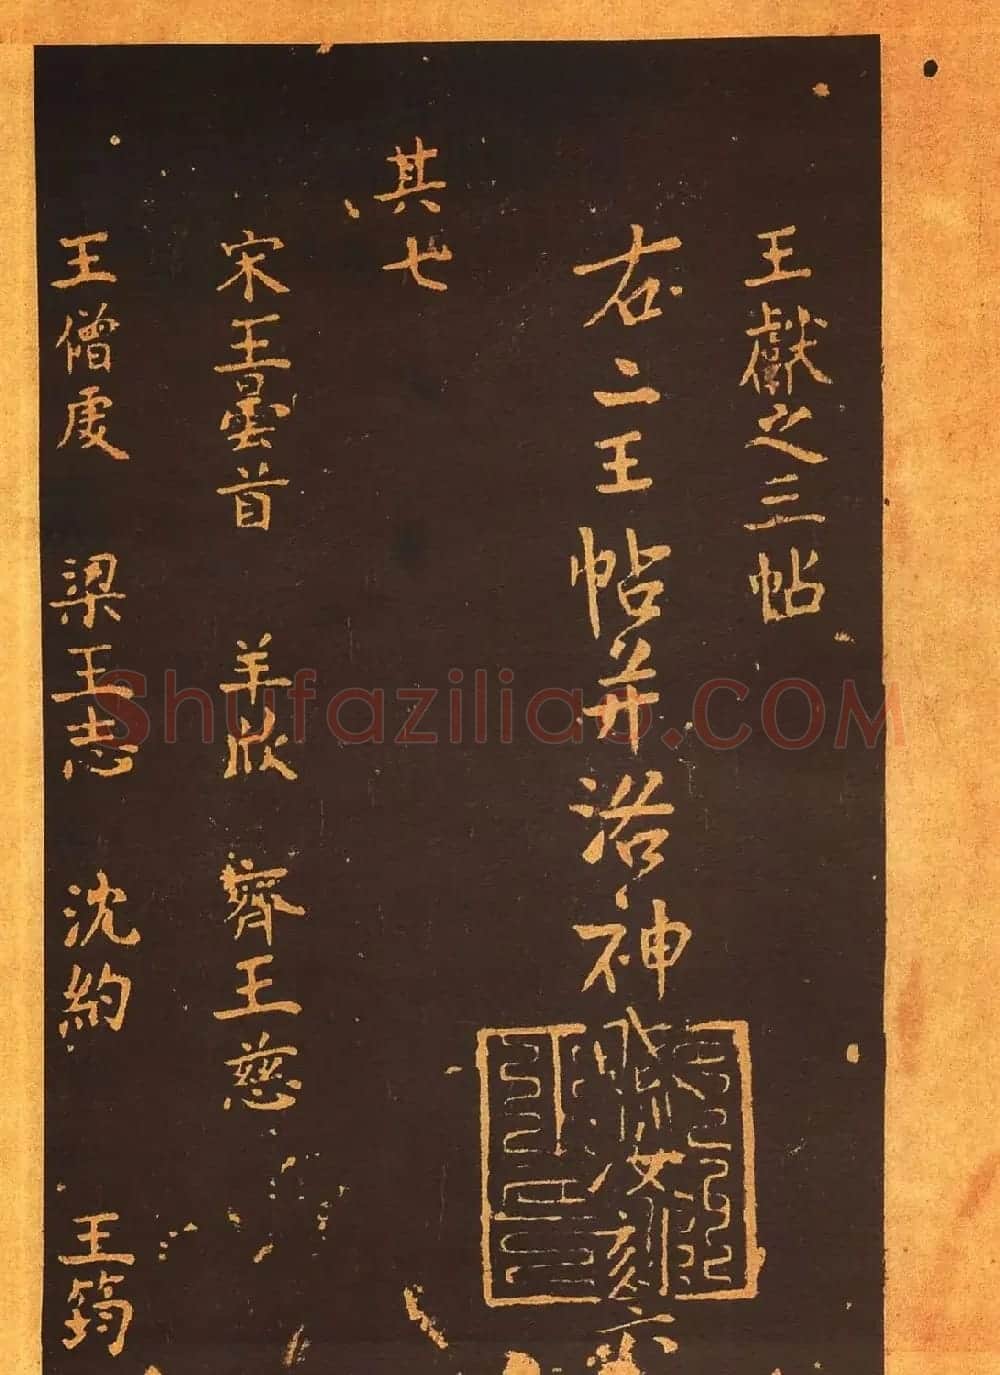 王獻之三帖
右二王帖并洛神
女刻六
其七
宋王曇首 羊欣 齊王慈
王僧虔 梁王志 沈約 王筠
Shufaziliao.COM